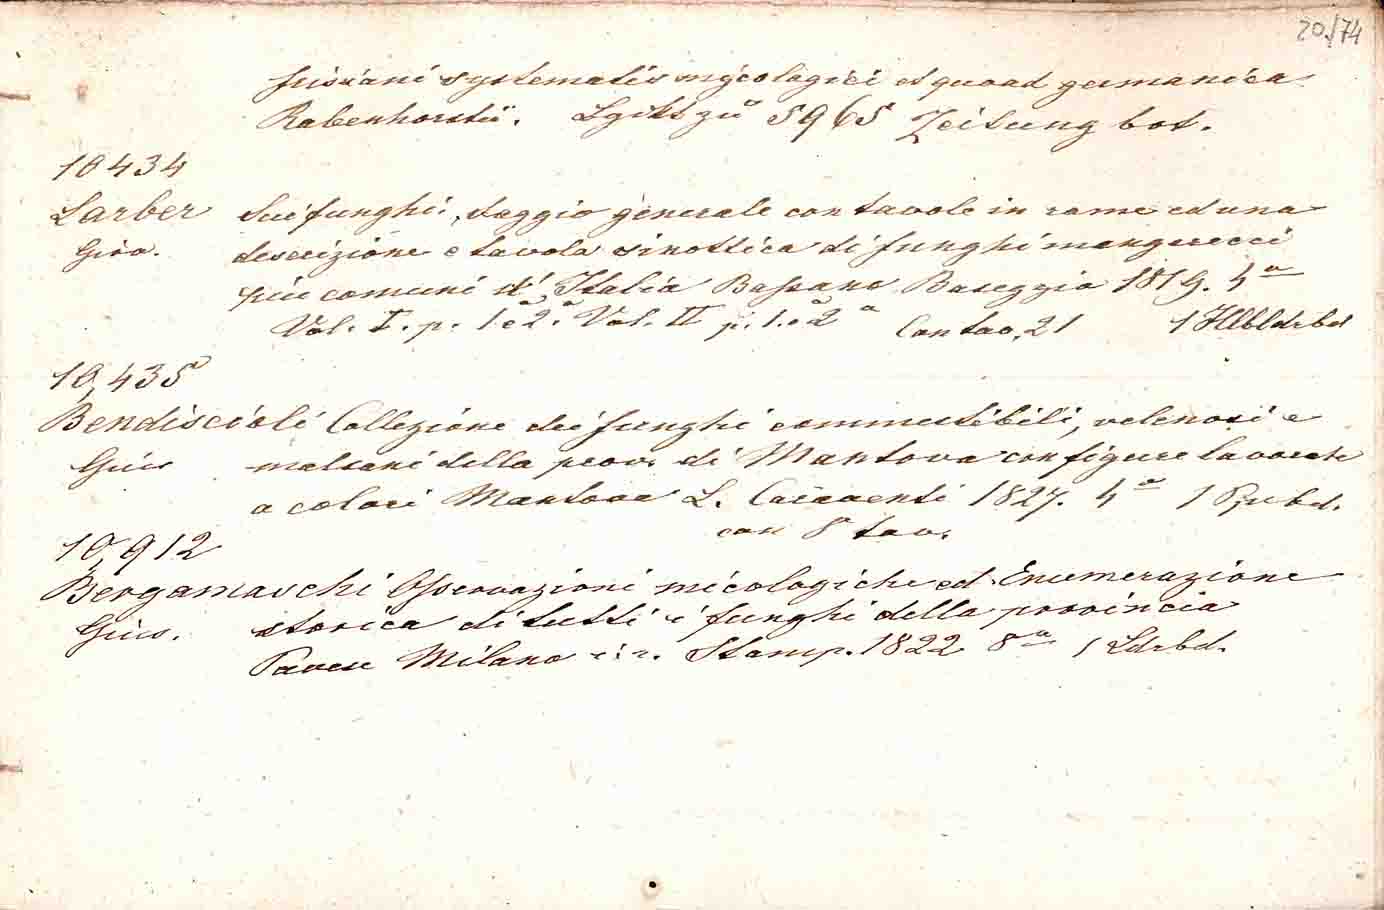 20./74
friesiani systematis mycologici et quoad germanica
Rabenhorstii. Lgitt zu 5965 Zeitung bot.
10434
Larber Sui funghi, saggio generale con tavole in rame ed una
Giov. descrizione e tavola sinottica di funghi mangerecci
piu comuni d' Italia Bassano Baseggio 1819. 4°
Vol. I. p. 1.e 2.a Vol. II p. 1.e 2a Con tav. 21 1 Hlbldrbd
10,435
Bendiscioli Collezione dei funghi commestibili, velenosi e
Gius malsani della prov. di Mantova con figure lavorate
a colori Mantova L. Caranenti 1827. 4° 1 Ppbd.
con 8 tav.
10,912
Bergamaschi Osservazioni micologiche ed Enumerazione
Gius. storica di tutti i funghi della provincia
Pavese Milano i. r. Stamp. 1822 8° 1 Ldrbd.